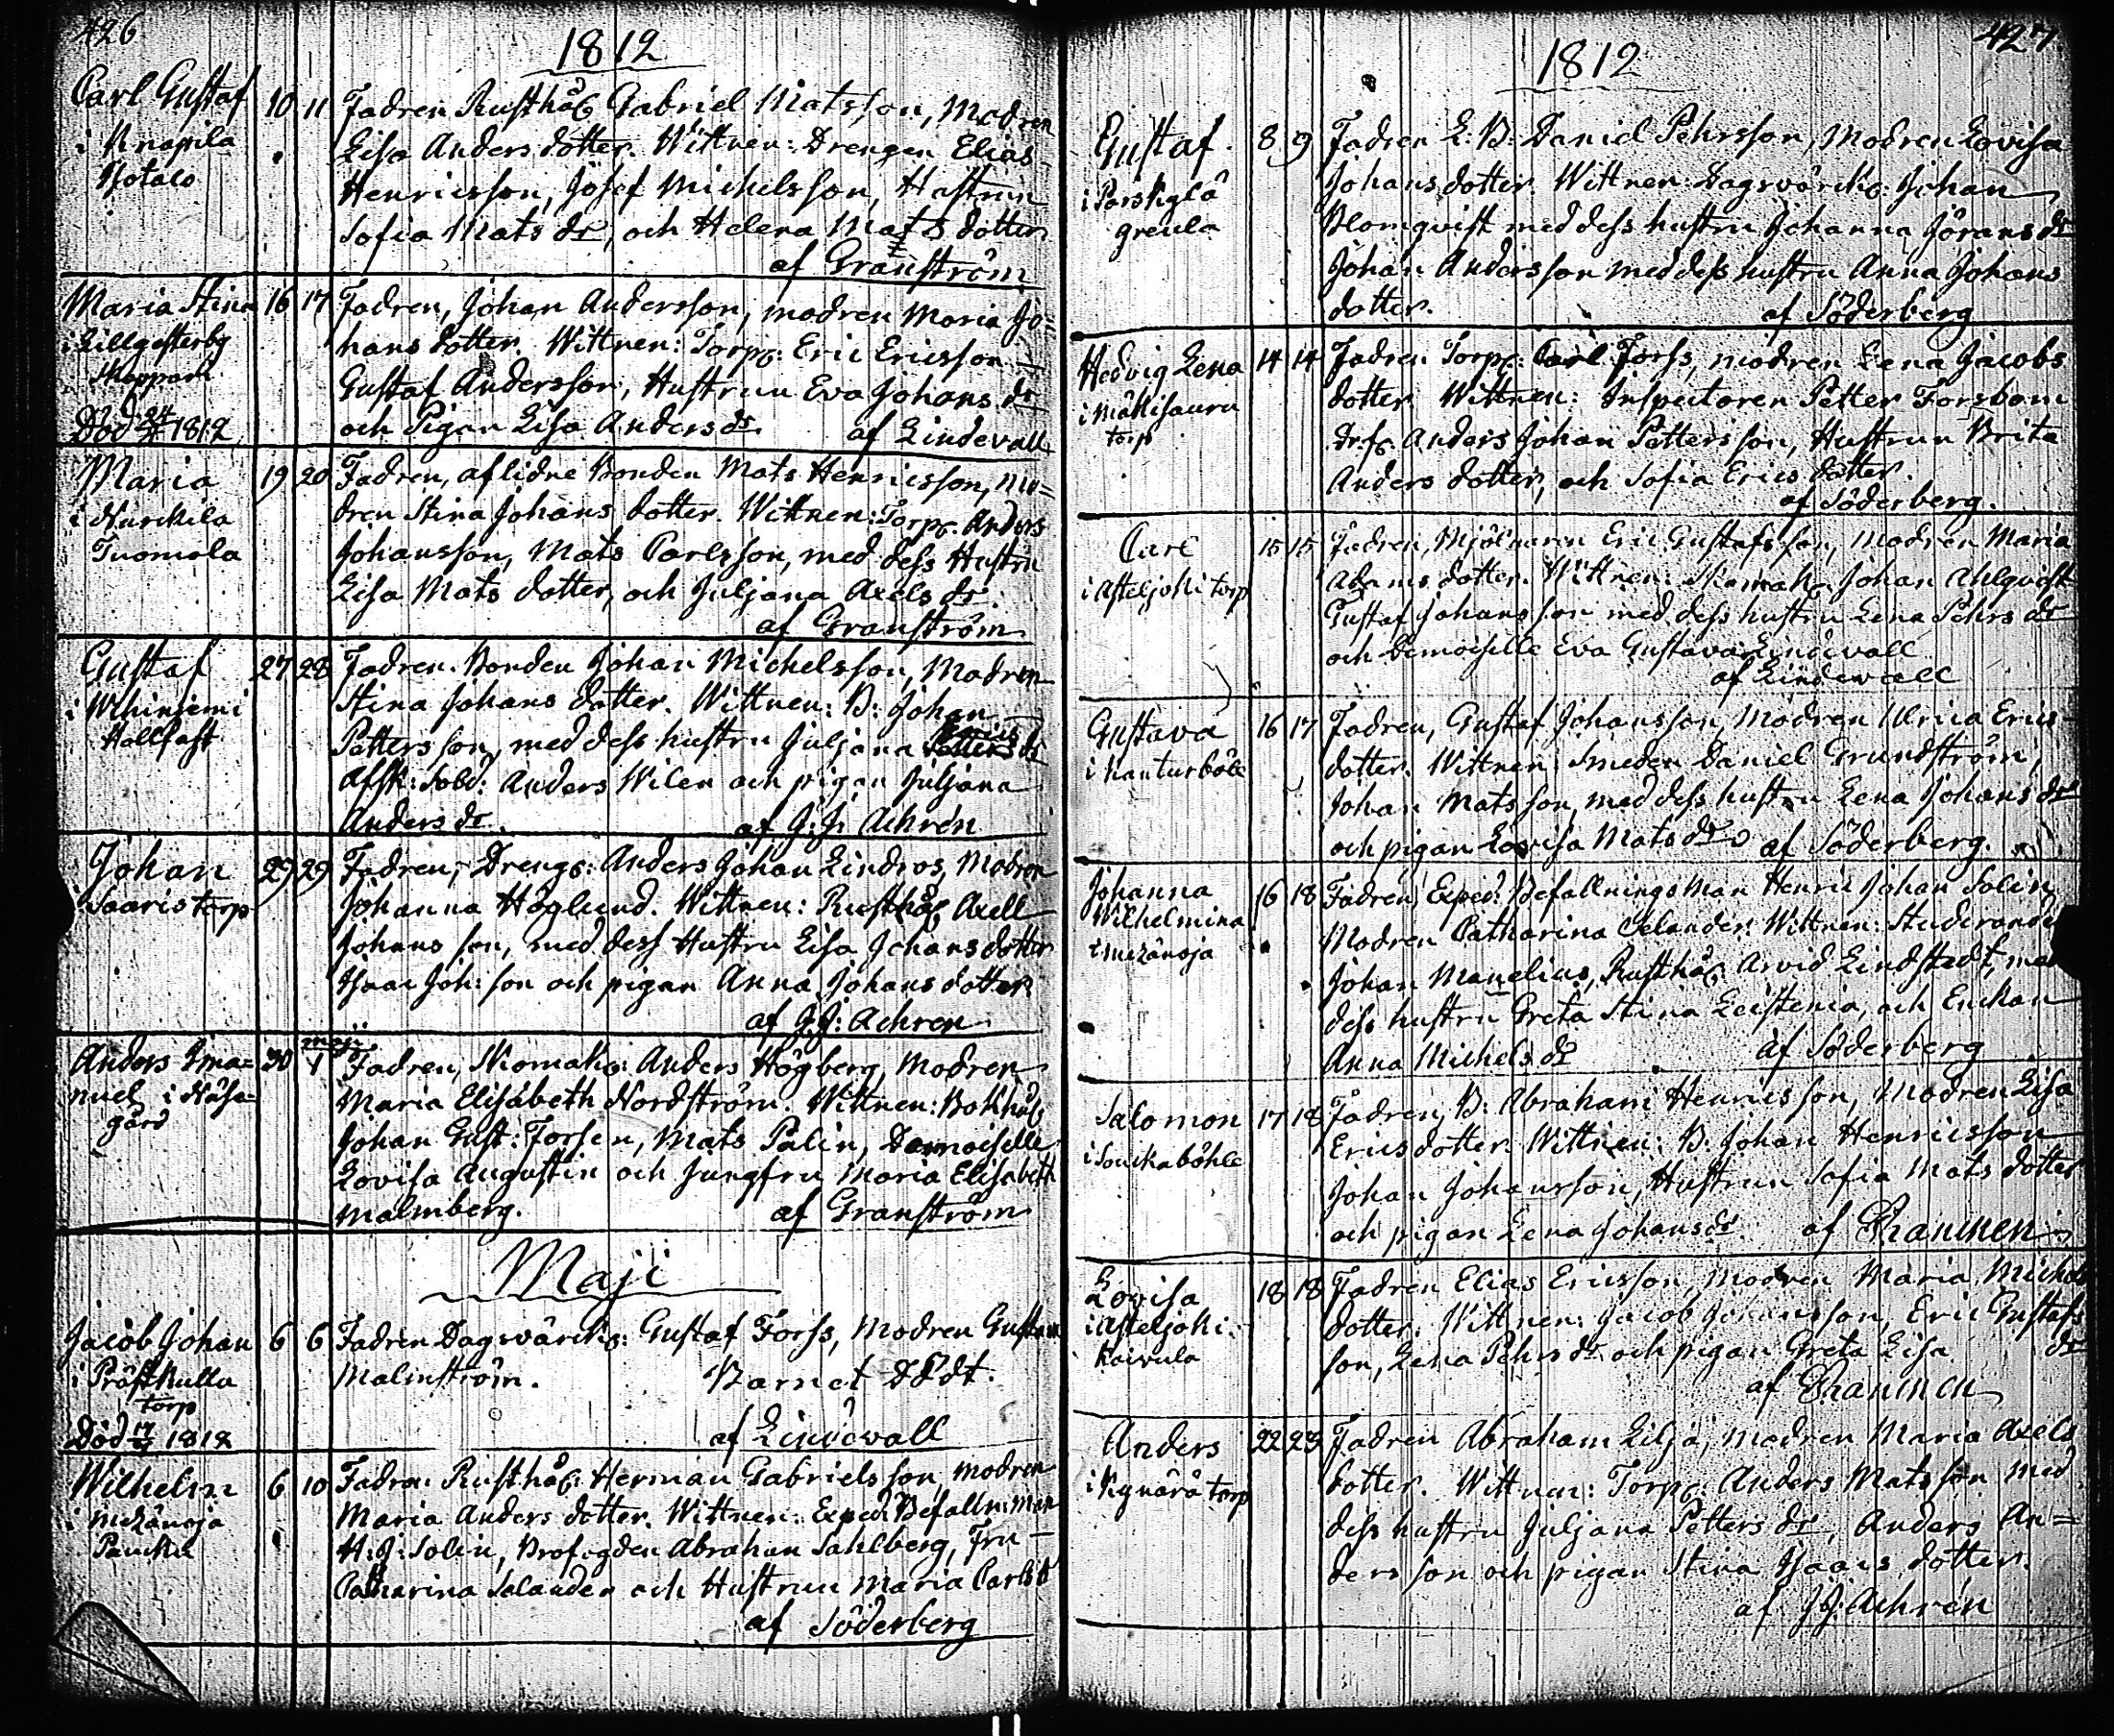 426
1812
Carl Gustaf 10 11 Fadren Rusthål: Gabriel Matsson, Modren
i Knapila Lisa Anders dotter. Wittnen: Drengen Elias
Notalo Henricsson, Josef Michelsson, Hustrun
Sofia Mats dr, och Helena Mats dotter
af Granström
Maria Stina 16 17 Fadren, Johan Andersson, modren Maria Jo=
i Lillgesterby hans dotter. Wittnen: Torp: Eric Ericsson
Skeppars Gustaf Andersson, Hustrun Eva Johans dr
Död 24 1812 och Pigan Lisa Anders dr. af Lindevall
Maria 19 20 Fadren, aflidne Bonden Mats Henricsson, mo=
i Nurckila dren Stina Johans dotter. Wittnen: Torp: Anders
Tuomola Johansson, Mats Carlsson, med dess Hustru
Lisa Mats dotter, och Juljana Axels dr.
af Granström
Gustaf 27 28 Fadren Bonden Johan Michelsson, Modren
i Wihiniemi Stina Johans dotter. Wittnen: B: Johan
Hallfast Petters son, med dess hustru Juljana dr
Afsk: Sold: Anders Wilen och pigan Juljana
Anders dr. af J: J: Achrén
Johan 29 29 Fadren, Dreng: Anders Johan Lindros, Modren
i Saaris torp Johanna Höglund. Wittnen: Rusthål: Axell
Johans son, med dess Hustru Lisa Johans dotter
Isaac Joh: son och pigan Anna Johans dotter.
af J: J: Achren
Anders Ema= 30 maji 1 Fadren, Skomak: Anders Högberg, Modren
nuel i Näse= Maria Elisabeth Nordström. Wittnen: Bokhål:
gård Johan Gust: Forsen, Mats Palin, Demoiselle
Lovisa Augustin och Jungfru Maria Elisabeth
Malmberg. af Granström
Maji
Jacob Johan 6 6 Fadren Dagsvärck: Gustaf Forss, Modren Gustava
i Prästkulla Malmström. Barnet DDdt.
torp
Död 17 1812 af Lindevall
Wilhelm 6 10 Fadren Rusthål: Herman Gabrielsson, modren
i Mezänoja Maria Anders dotter. Wittnen: Exped: Befalln: man
Paucku H: J: Solin, Brofogden Abraham Sahlberg, Fru
Catharina Selander och Hustrun Maria Carls dr
af Söderberg
427
1812
Gustaf 8 9 Fadren L: B: Daniel Pehrsson, Modren Lovisa
i Johans dotter. Wittnen: Dagsvärck: Johan
greula Blomqvist med dess hustru Johanna Jörans dr
Johan Andersson med dess hustru Anna Johans
dotter. af Söderberg
Hedvig Lena 14 14 Fadren Torp: Carl Forss, modren Lena Jacobs
i Mäkisauru dotter. Wittnen: Inspectoren Petter Forsbom
torp Anders Johan Petters son, Hustrun Brita
Anders dotter, och Sofia Erics dotter.
af Söderberg.
Carl 15 15 Fadren, Mjölnaren Eric Gustafsson, modren Maria
i Asteljoki torp Adams dotter. Wittnen: Skomak: Johan Ahlqvist
Gustaf Johansson med dess hustru Lena Pehrs dr
och Demoiselle Eva Gustava Lindevall
af Lindewall
Gustava 16 17 Fadren, Gustaf Johansson, Modren Ulrica Erics
i Kanturböle dotter. Wittnen Smeden Daniel Grundström,
Johan Matsson, med dess hustru Lena Johans dr
och pigan Lovisa Mats dr af Söderberg.
Johanna 16 18 Fadren, Exped: Befallningsman Henric Johan Solin
Wilhelmina Modren Catharina Selander. Wittnen: Studerande
i Mezänoja Johan Manelius, Rusthål: Arvid Lindstedt, med
dess hustru Greta Stina Leistenia, och Enckan
Anna Michels dr af Söderberg
Salomon 17 18 Fadren, B: Abraham Henricsson, Modren Lisa
i Souckaböhle Erics dotter. Wittnen: B: Johan Henricsson
Johan Johansson, Hustrun Sofia Mats dotter
och pigan Lena Johans dr. af Phraninen
Lovisa 18 18 Fadren Elias Ericsson, modren Maria Michels
i Asteljoki dotter. Wittnen: Jacob Johansson, Eric Gustafs
Koivula son, Lena Pehrs dr och pigan Greta Lisa dr
af
Anders 22 23 Fadren Abraham Lilja, modren Maria Axels
i torp dotter. Wittnen: Torp: Anders Matsson med
dess hustru Juljana Petters dr, Anders An=
ders son och pigan Stina Isaacs dotter.
af J J: Achrén